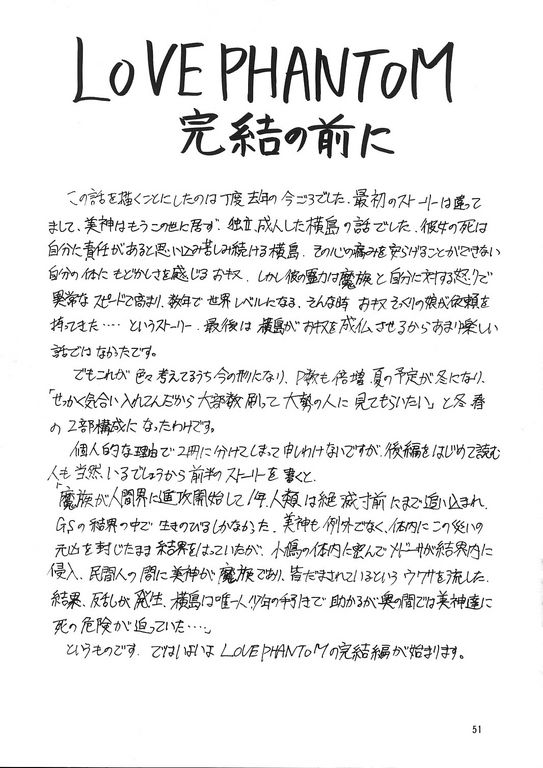 LOVE PHANTOM
完結の前に
この話を描くことにしたのは丁度去年の今ごろでした。最初のストーリーは違って
まして、美神はもうこの世に居ず、独立、成人した横島の話でした。彼女の死は
自分に責任があると思い込み苦しみ続ける横島、その心の痛みを安らげることができない
自分の体にもどかしさを感じるおキヌ、しかし彼の霊力は魔族と自分に対する怒りで
異常なスピードで高まり、数年で世界レベルになる、そんな時おキヌそっくりの娘が依頼を
持ってきた‥‥というストーリー、最後は横島がおキヌを成仏させるからあまり楽しい
話ではなかったです。
でもこれが色々考えてるうち今の形になり、P数も倍増、夏の予定が冬になり、
「せっかく気合い入れてんだから大部数刷って大勢の人に見てもらいたい」と冬春
の2部構成になったわけです。
個人的な理由で2冊に分けてしまって申しわけないですが、後編をはじめて読む
人も当然いるでしょうから前半のストーリーを書くと、
「魔族が人間界に進攻開始して1年、人類は絶滅寸前にまで追い込まれ、
GSの結界の中で生きのびるしかなかった、美神も例外でなく、体内にこの災いの
元凶を封じたまま結界をはっていたが、小鳩の体内に潜んでメドーサが結界内に
侵入、民間人の間に美神が魔族であり、皆だまされているというウワサを流した、
結果、反乱が発生、横島は唯一人の手引きで助かるが奥の間では美神達に
死の危険が迫っていた‥‥」
というものです、ではいよいよLOVE PHANTOMの完結編が始まります。
51